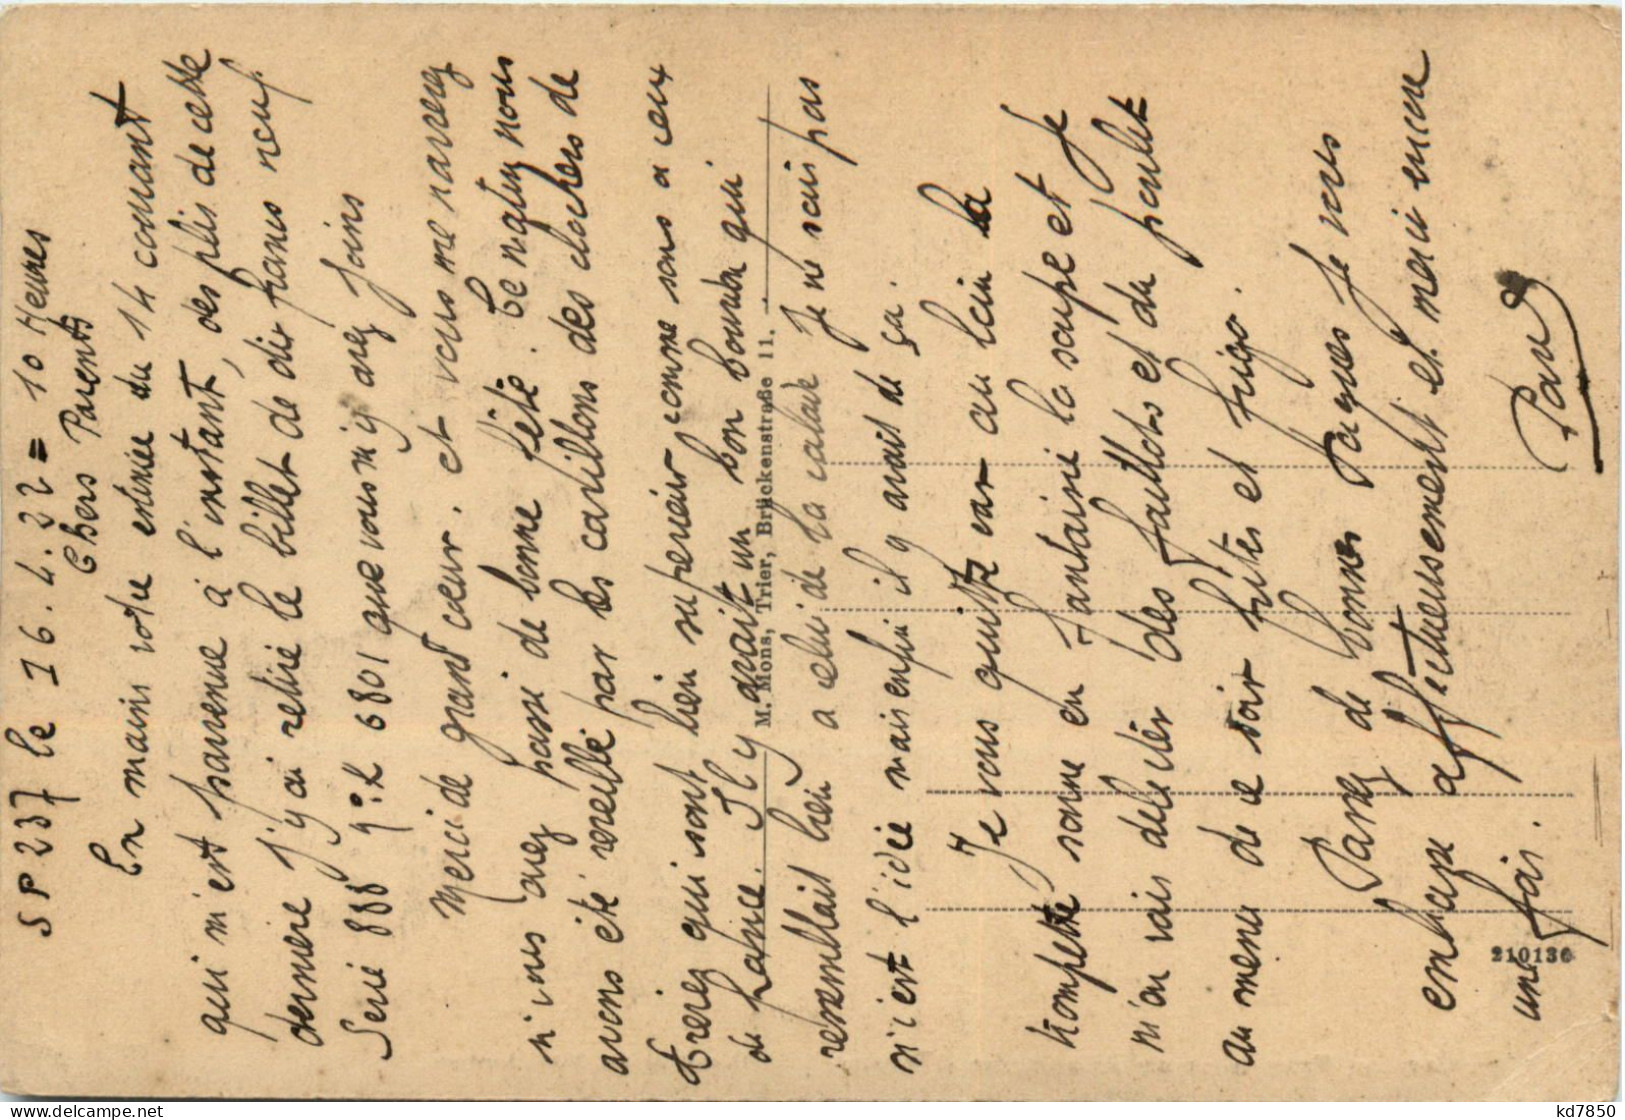 SP 237 le 16.4.22 = 10 Heures
Chers Parents
En main votre entrée du 14 courant
qui m'est parvenue à l'instant, des plis de cette
derniere j'y ai retiré le billet de dix francs neuf
Serie 888 9°.L 6801 que vous m'y avez joins
Merci de grand cœur. et vous me narrez
si vous avez passé de bonne fête. Ce matin nous
avons été réveillé par les carillons des clochers de
Treves qui sont bien superieur comme sons a ceux
de France. Il y avait un bon bourdon qui
ressemblait bien a celui de la Je ne sais pas
si c'est l'idée mais enfin il y avait de ça.
Je vous quitte car au loin la
trompette sonne en fantaisie la soupe et Je
m'en vais deleter des faillots et du poulet
au menu de ce soir frites et frigo.
Passez de bonnes Paques Je vous
embrasse affectueusement et merci encore
une fois.
Paul
M. Mons, Trier, Brückenstraße 11.
210136
kd7850